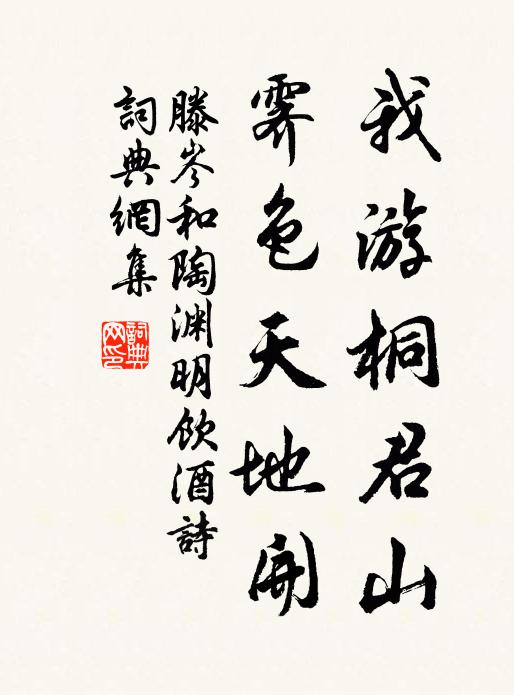 我游桐君山
霽色天地開
滕岑和陶淵明飲酒詩
詞典網集
詞典網印